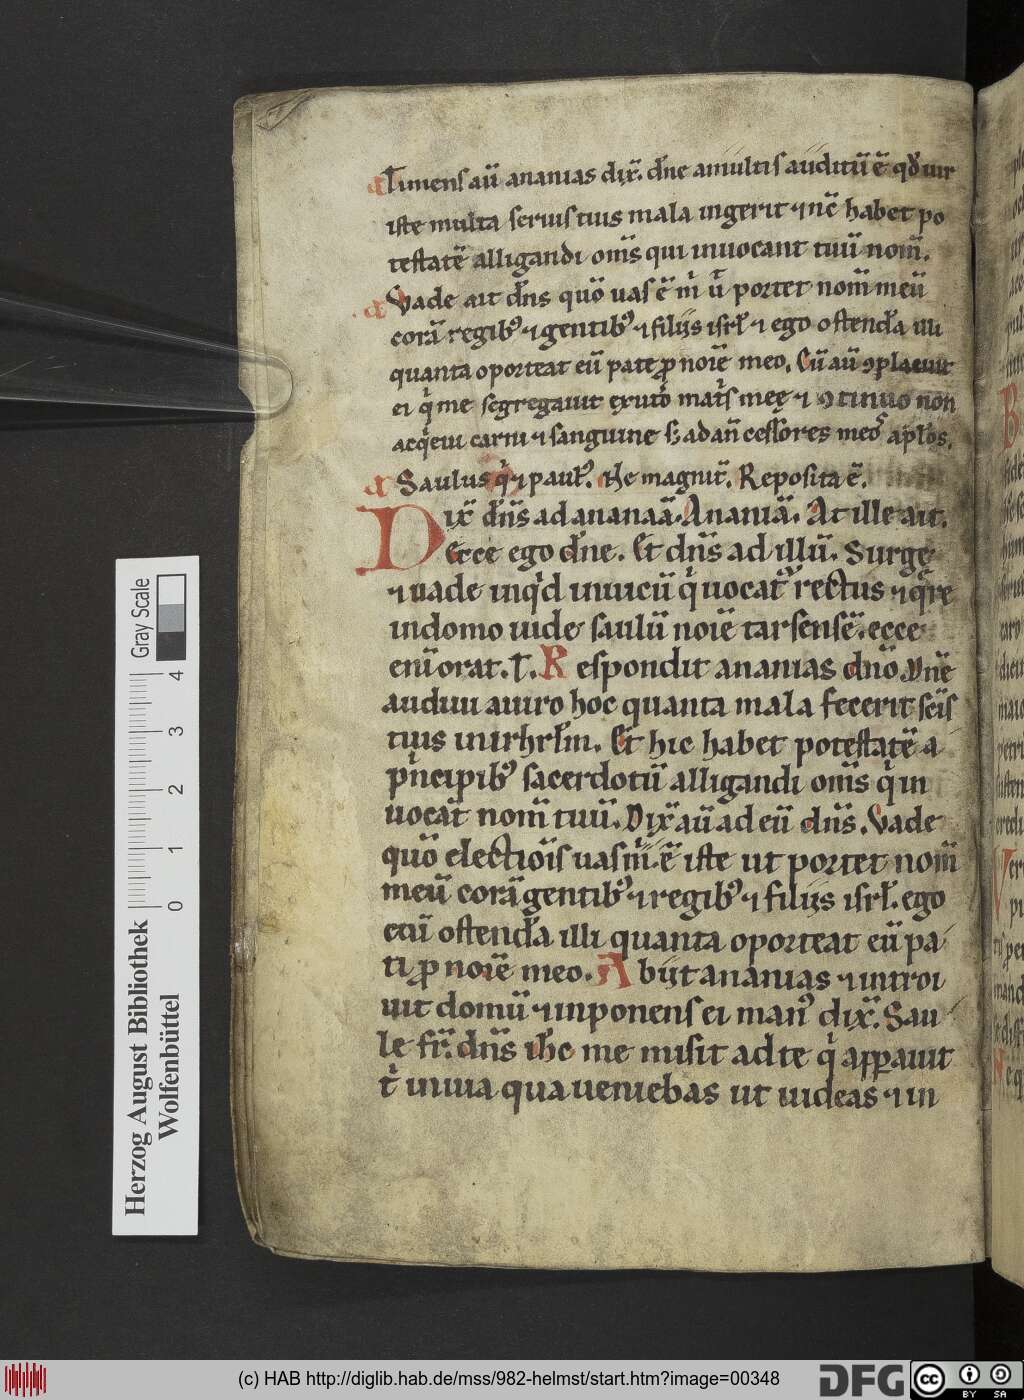 a Timens aū ananias dix̄. dn̄e amultis auditū ē qđ uir
iste multa seruis tuis mala ingerit ⁊ nc̄ habet po
testatē alligandi om̄s qui inuocant tuū nom̄.
a Vade ait dn̄s quō uas ē m̄ ut portet nom̄ meū
corā regib⁹ ⁊ gentib⁹ ⁊ filiis isrł ⁊ ego ostendā illi
quanta oporteat eū pate ꝓ noīe meo. Cū aū ↄplacuit
ei qͥ me segregauit ex utō mat̄s meę ⁊ ↄtinuo non
acqͥeui carni ⁊ sanguine ad an̄cessores meos apłos.
a Saulus qͥ ⁊ paul⁹. magnit̄. Reposita ē.
Dix̄ dn̄s ad ananaā. Ananiā. At ille ait.
Ecce ego dn̄e. Et dn̄s ad illū. Surge
⁊ uade inqͥd in uicū qͥ uocat̄ rectus ⁊ qͣre
in domo uide saulū noīe tarsensē. ecce
enī orat. T. Respondit ananias dnō. Dn̄e
audiui a uiro hoc quanta mala fecerit scīs
tuis in irhrłm. Et hic habet potestatē a
pͥncipib⁹ sacerdotū alligandi om̄s qͥ in
uocāt nom̄ tuū. Dix̄ aū ad eū dn̄s. Vade
quō electiōis uas m̄ ē iste ut portet nom̄
meū corā gentib⁹ ⁊ regib⁹ ⁊ filiis isrł. ego
eū ostendā illi quanta oporteat eū pa
ti ꝓ noīe meo. Abiit ananias ⁊ introi
uit domū ⁊ inponens ei man⁹ dix̄. Sau
le fr̄. dn̄s ih̄c me misit ad te qͥ apꝑauit
tͥ in uia qua ueniebas ut uideas ⁊ in
Herzog August Bibliothek
Wolfenbüttel
0 1 2 3 4
Gray Scale
(c) HAB http://diglib.hab.de/mss/982-helmst/start.htm?image=00348
DFG
cc BY SA